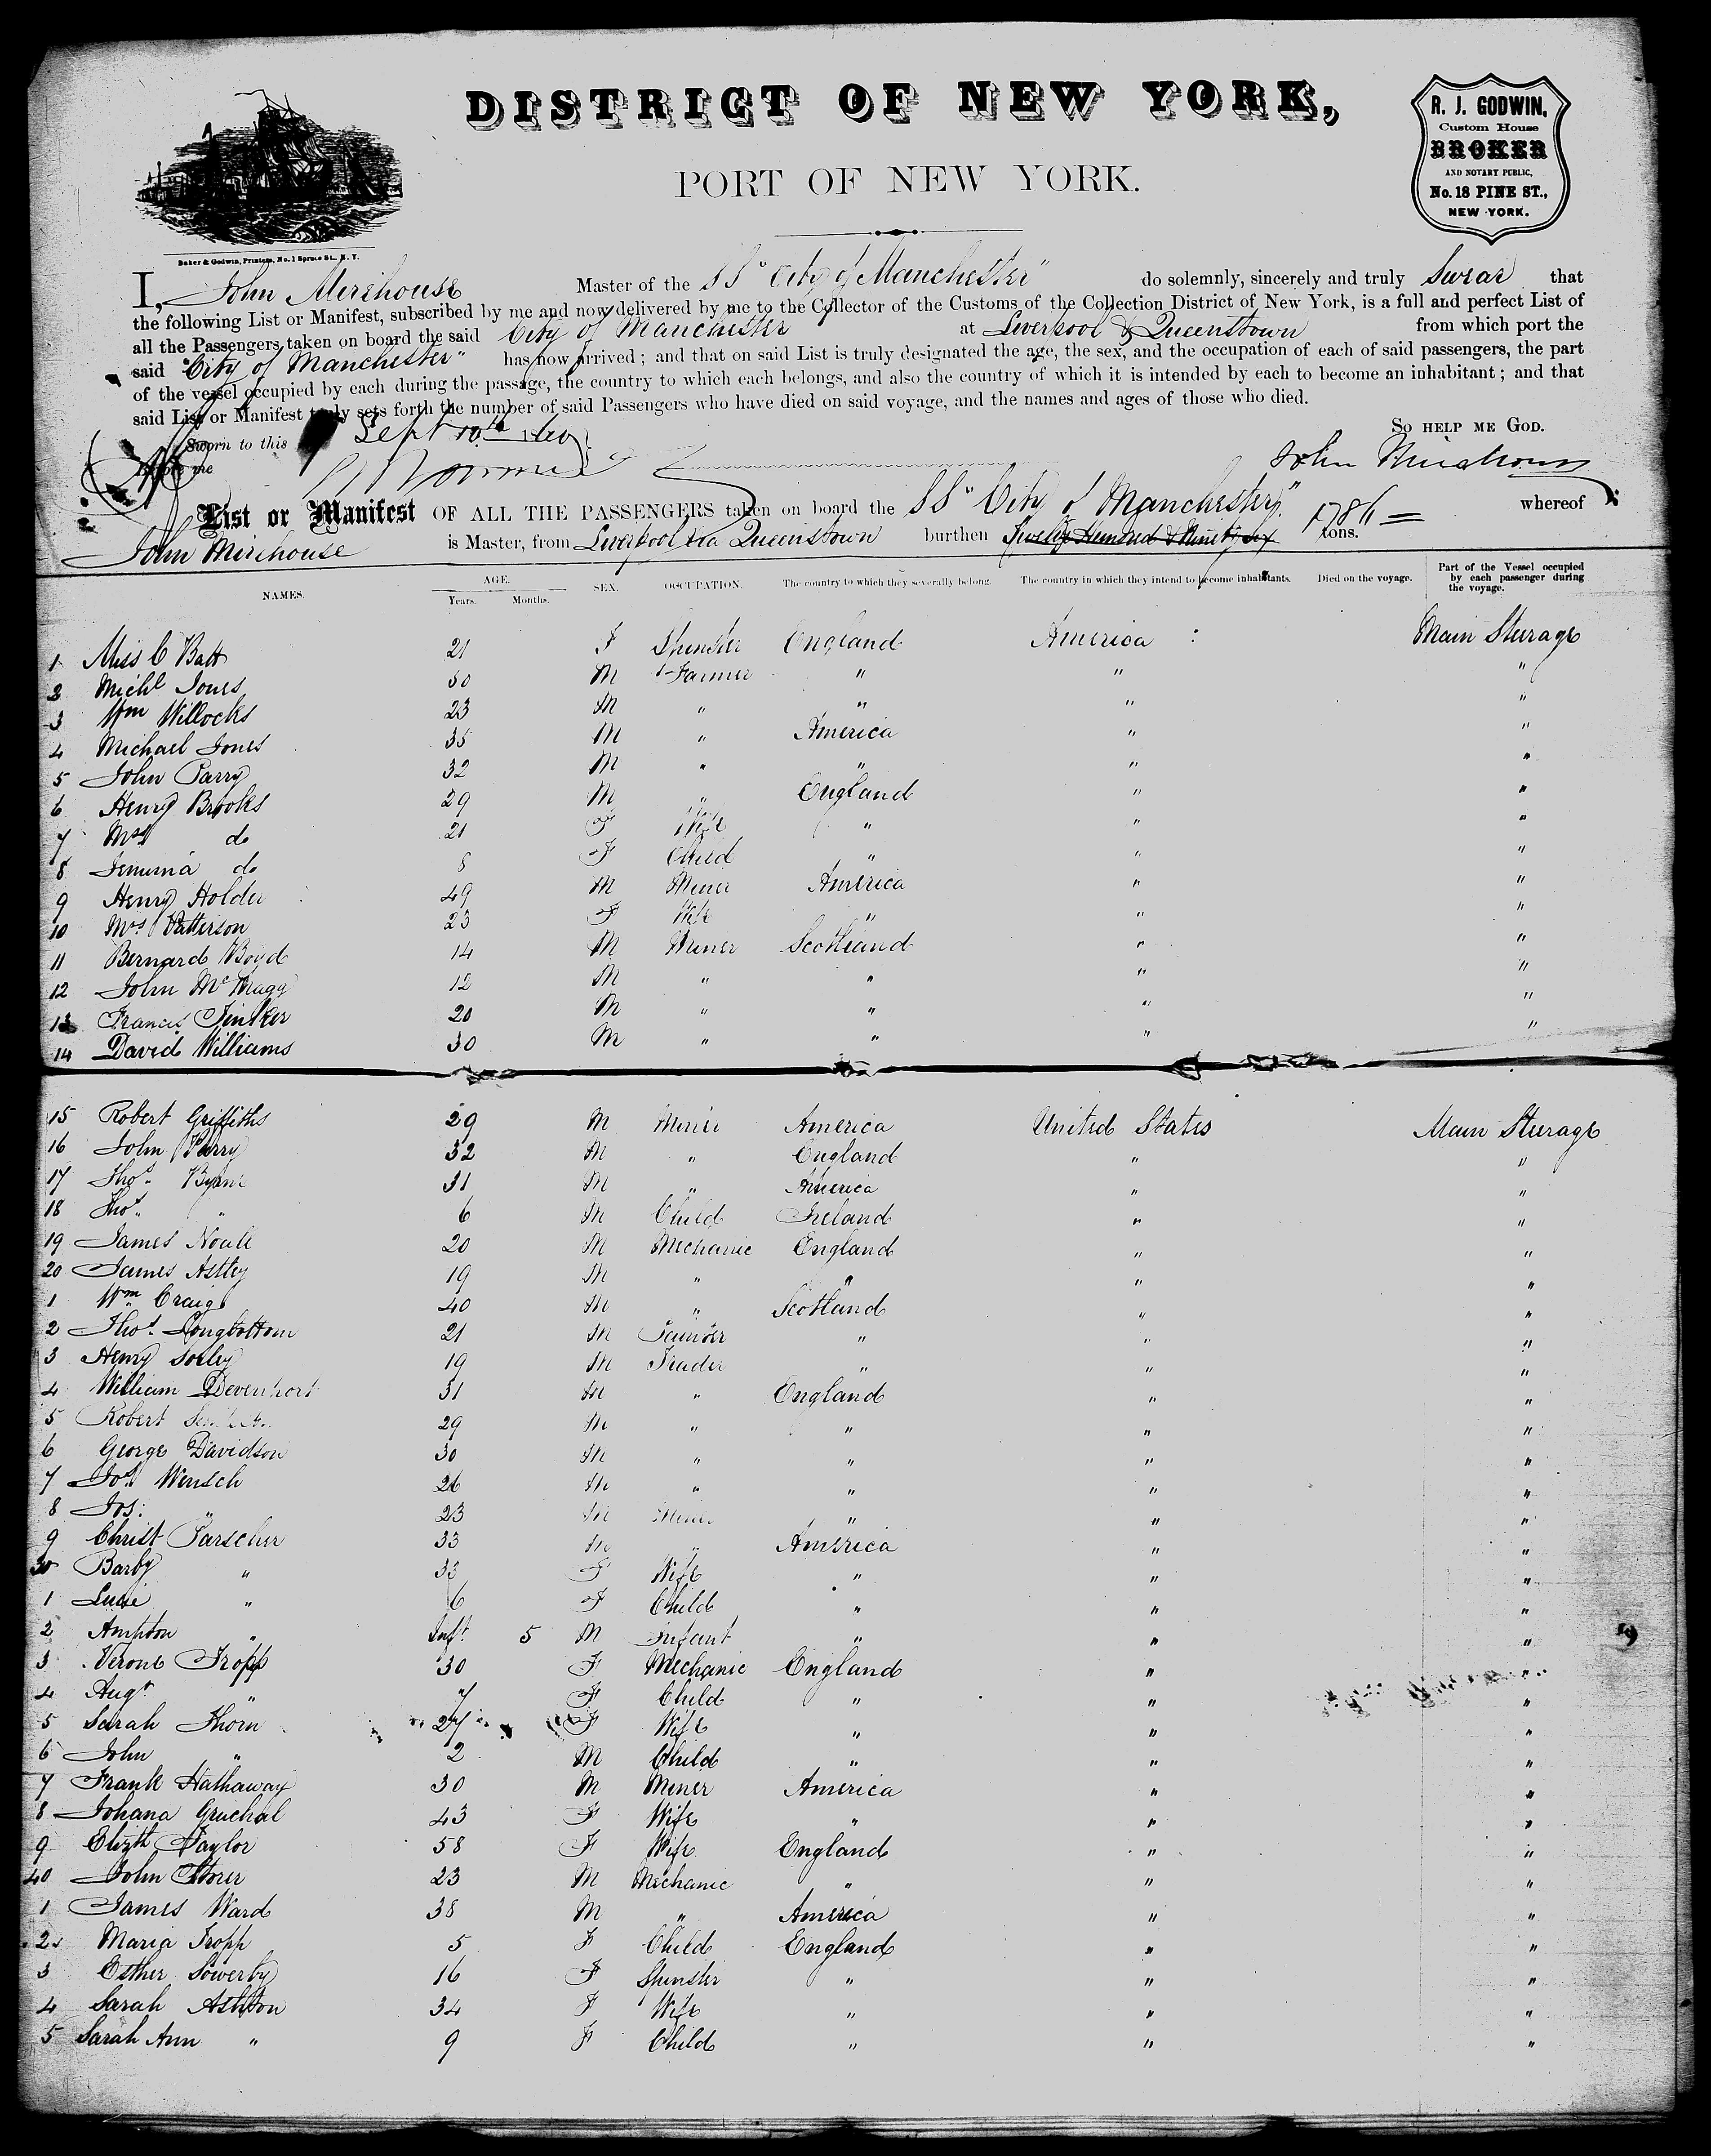 DISTRICT OF NEW YORK,
PORT OF NEW YORK.
R. J. GODWIN,
Custom House
BROKER
AND NOTARY PUBLIC,
No. 18 PINE ST.,
NEW YORK.
Baker & Godwin, Printers, No. 1 Spruce St., N. Y.
I, John Mirehouse Master of the SS "City of Manchester" do solemnly, sincerely and truly Swear that
the following List or Manifest, subscribed by me and now delivered by me to the Collector of the Customs of the Collection District of New York, is a full and perfect List of
all the Passengers taken on board the said City of Manchester at Liverpool & Queenstown from which port the
said "City of Manchester" has now arrived; and that on said List is truly designated the age, the sex, and the occupation of each of said passengers, the part
of the vessel occupied by each during the passage, the country to which each belongs, and also the country of which it is intended by each to become an inhabitant; and that
said List or Manifest truly sets forth the number of said Passengers who have died on said voyage, and the names and ages of those who died.
Sworn to this Sept 10th 1860 So HELP ME GOD.
Before me John Mirehouse
List or Manifest OF ALL THE PASSENGERS taken on board the SS "City of Manchester" whereof
John Mirehouse is Master, from Liverpool via Queenstown burthen Twelve Hundred & Ninety six 1786 = tons.
NAMES. AGE. Years. Months. SEX. OCCUPATION. The country to which they severally belong. The country in which they intend to become inhabitants. Died on the voyage. Part of the Vessel occupied by each passenger during the voyage.
1 Miss C Batt 21 F Spinster England America : Main Sterage
2 Michl Jones 50 M Farmer " " "
3 Wm Willocks 23 M " " " "
4 Michael Jones 35 M " America " "
5 John Parry 32 M " " " "
6 Henry Brooks 29 M " England " "
7 Mrs do 21 F Wife " " "
8 Jemima do 8 F Child " " "
9 Henry Holder 49 M Miner America " "
10 Mrs Patterson 23 F Wife " " "
11 Bernard Boyd 14 M Miner Scotland " "
12 John 12 M " " " "
13 Francis Tinker 20 M " " " "
14 David Williams 30 M " " " "
15 Robert Griffiths 29 M Miner America United States Main Sterage
16 John Parry 32 M " England " "
17 Thos. Byrne 31 M " America " "
18 Thos. " 6 M Child Ireland " "
19 James Noall 20 M Mechanic England " "
20 James Astley 19 M " " " "
1 Wm Craig 40 M " Scotland " "
2 Thos. Longbottom 21 M " " "
3 Henry Sorley 19 M Trader " " "
4 William Devenport 31 M " England " "
5 Robert 29 M " " " "
6 George Davidson 30 M " " " "
7 Jos. Wensch 26 M " " " "
8 Jos: " 23 M Miner " " "
9 Christ Parscher 33 M " America " "
30 Barby " 33 F Wife " " "
1 Lucie " 6 F Child " " "
2 " Inft. 5 M Infant " " "
3 Verone Tropp 30 F Mechanic England " "
4 Augt. " 7 F Child " " "
5 Sarah Thorn 27 F Wife " " "
6 John " 2 M Child " " "
7 Frank Hathaway 30 M Miner America " "
8 Johana Gruchal 43 F Wife " " "
9 Elizth Taylor 58 F Wife England " "
40 John Storer 23 M Mechanic " " "
1 James Ward 38 M " America " "
2 Maria Tropp 5 F Child England " "
3 Esther Sowerby 16 F Spinster " " "
4 Sarah Ashton 34 F Wife " " "
5 Sarah Ann " 9 F Child " " "